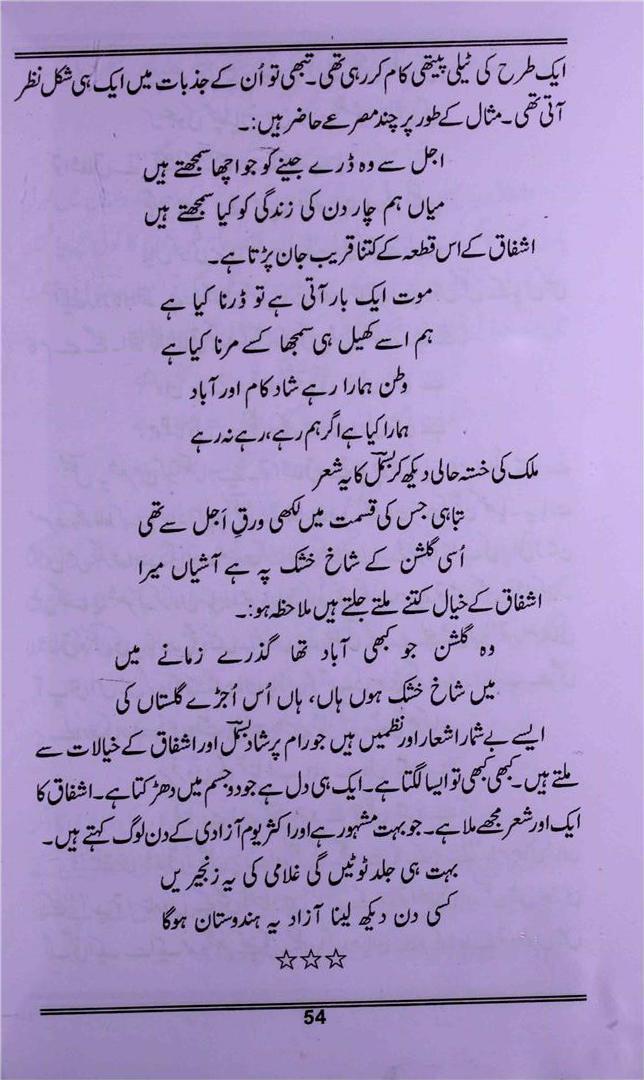 ایک طرح کی ٹیلی پیتھی کام کر رہی تھی۔ تبھی تو اُن کے جذبات میں ایک ہی شکل نظر
آتی تھی۔ مثال کے طور پر چند مصرعے حاضر ہیں:۔
اجل سے وہ ڈرے جینے کو جو اچھا سمجھتے ہیں
میاں ہم چار دن کی زندگی کو کیا سمجھتے ہیں
اشفاق کے اس قطعہ کے کتنا قریب جان پڑتا ہے۔
موت ایک بار آتی ہے تو ڈرنا کیا ہے
ہم اسے کھیل ہی سمجھا کسے مرنا کیا ہے
وطن ہمارا رہے شاد کام اور آباد
ہمارا کیا ہے اگر ہم رہے، رہے نہ رہے
ملک کی خستہ حالی دیکھ کر بسملؔ کا یہ شعر
تباہی جس کی قسمت میں لکھی ورقِ اَجل سے تھی
اُسی گلشن کے شاخ خشک پہ ہے آشیاں میرا
اشفاق کے خیال کتنے ملتے جلتے ہیں ملاحظہ ہو:۔
وہ گلشن جو کبھی آباد تھا گذرے زمانے میں
میں شاخ خشک ہوں ہاں، ہاں اُس اُجڑے گلستاں کی
ایسے بے شمار اشعار اور نظمیں ہیں جو رام پرشاد بسملؔ اور اشفاق کے خیالات سے
ملتے ہیں۔ کبھی کبھی تو ایسا لگتا ہے۔ ایک ہی دل ہے جو دو جسم میں دھڑکتا ہے۔ اشفاق کا
ایک اور شعر مجھے ملا ہے۔ جو بہت مشہور ہے اور اکثر یوم آزادی کے دن لوگ کہتے ہیں۔
بہت ہی جلد ٹوٹیں گی غلامی کی یہ زنجیریں
کسی دن دیکھ لینا آزاد یہ ہندوستان ہوگا
☆☆☆
54